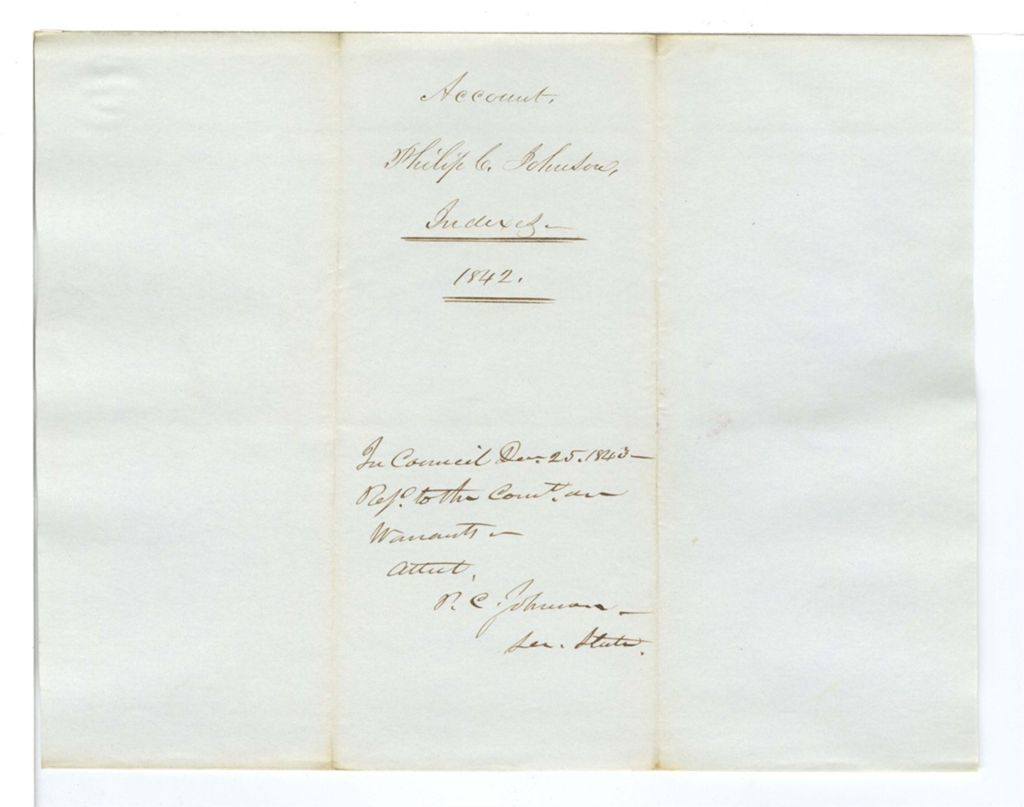 Account,
Philip C. Johnson,
Indexes
1842.
In Council Dec. 25. 1843 —
Refd. to the Comte. on
Warrants —
Attest,
P. C. Johnson —
Sec. State.